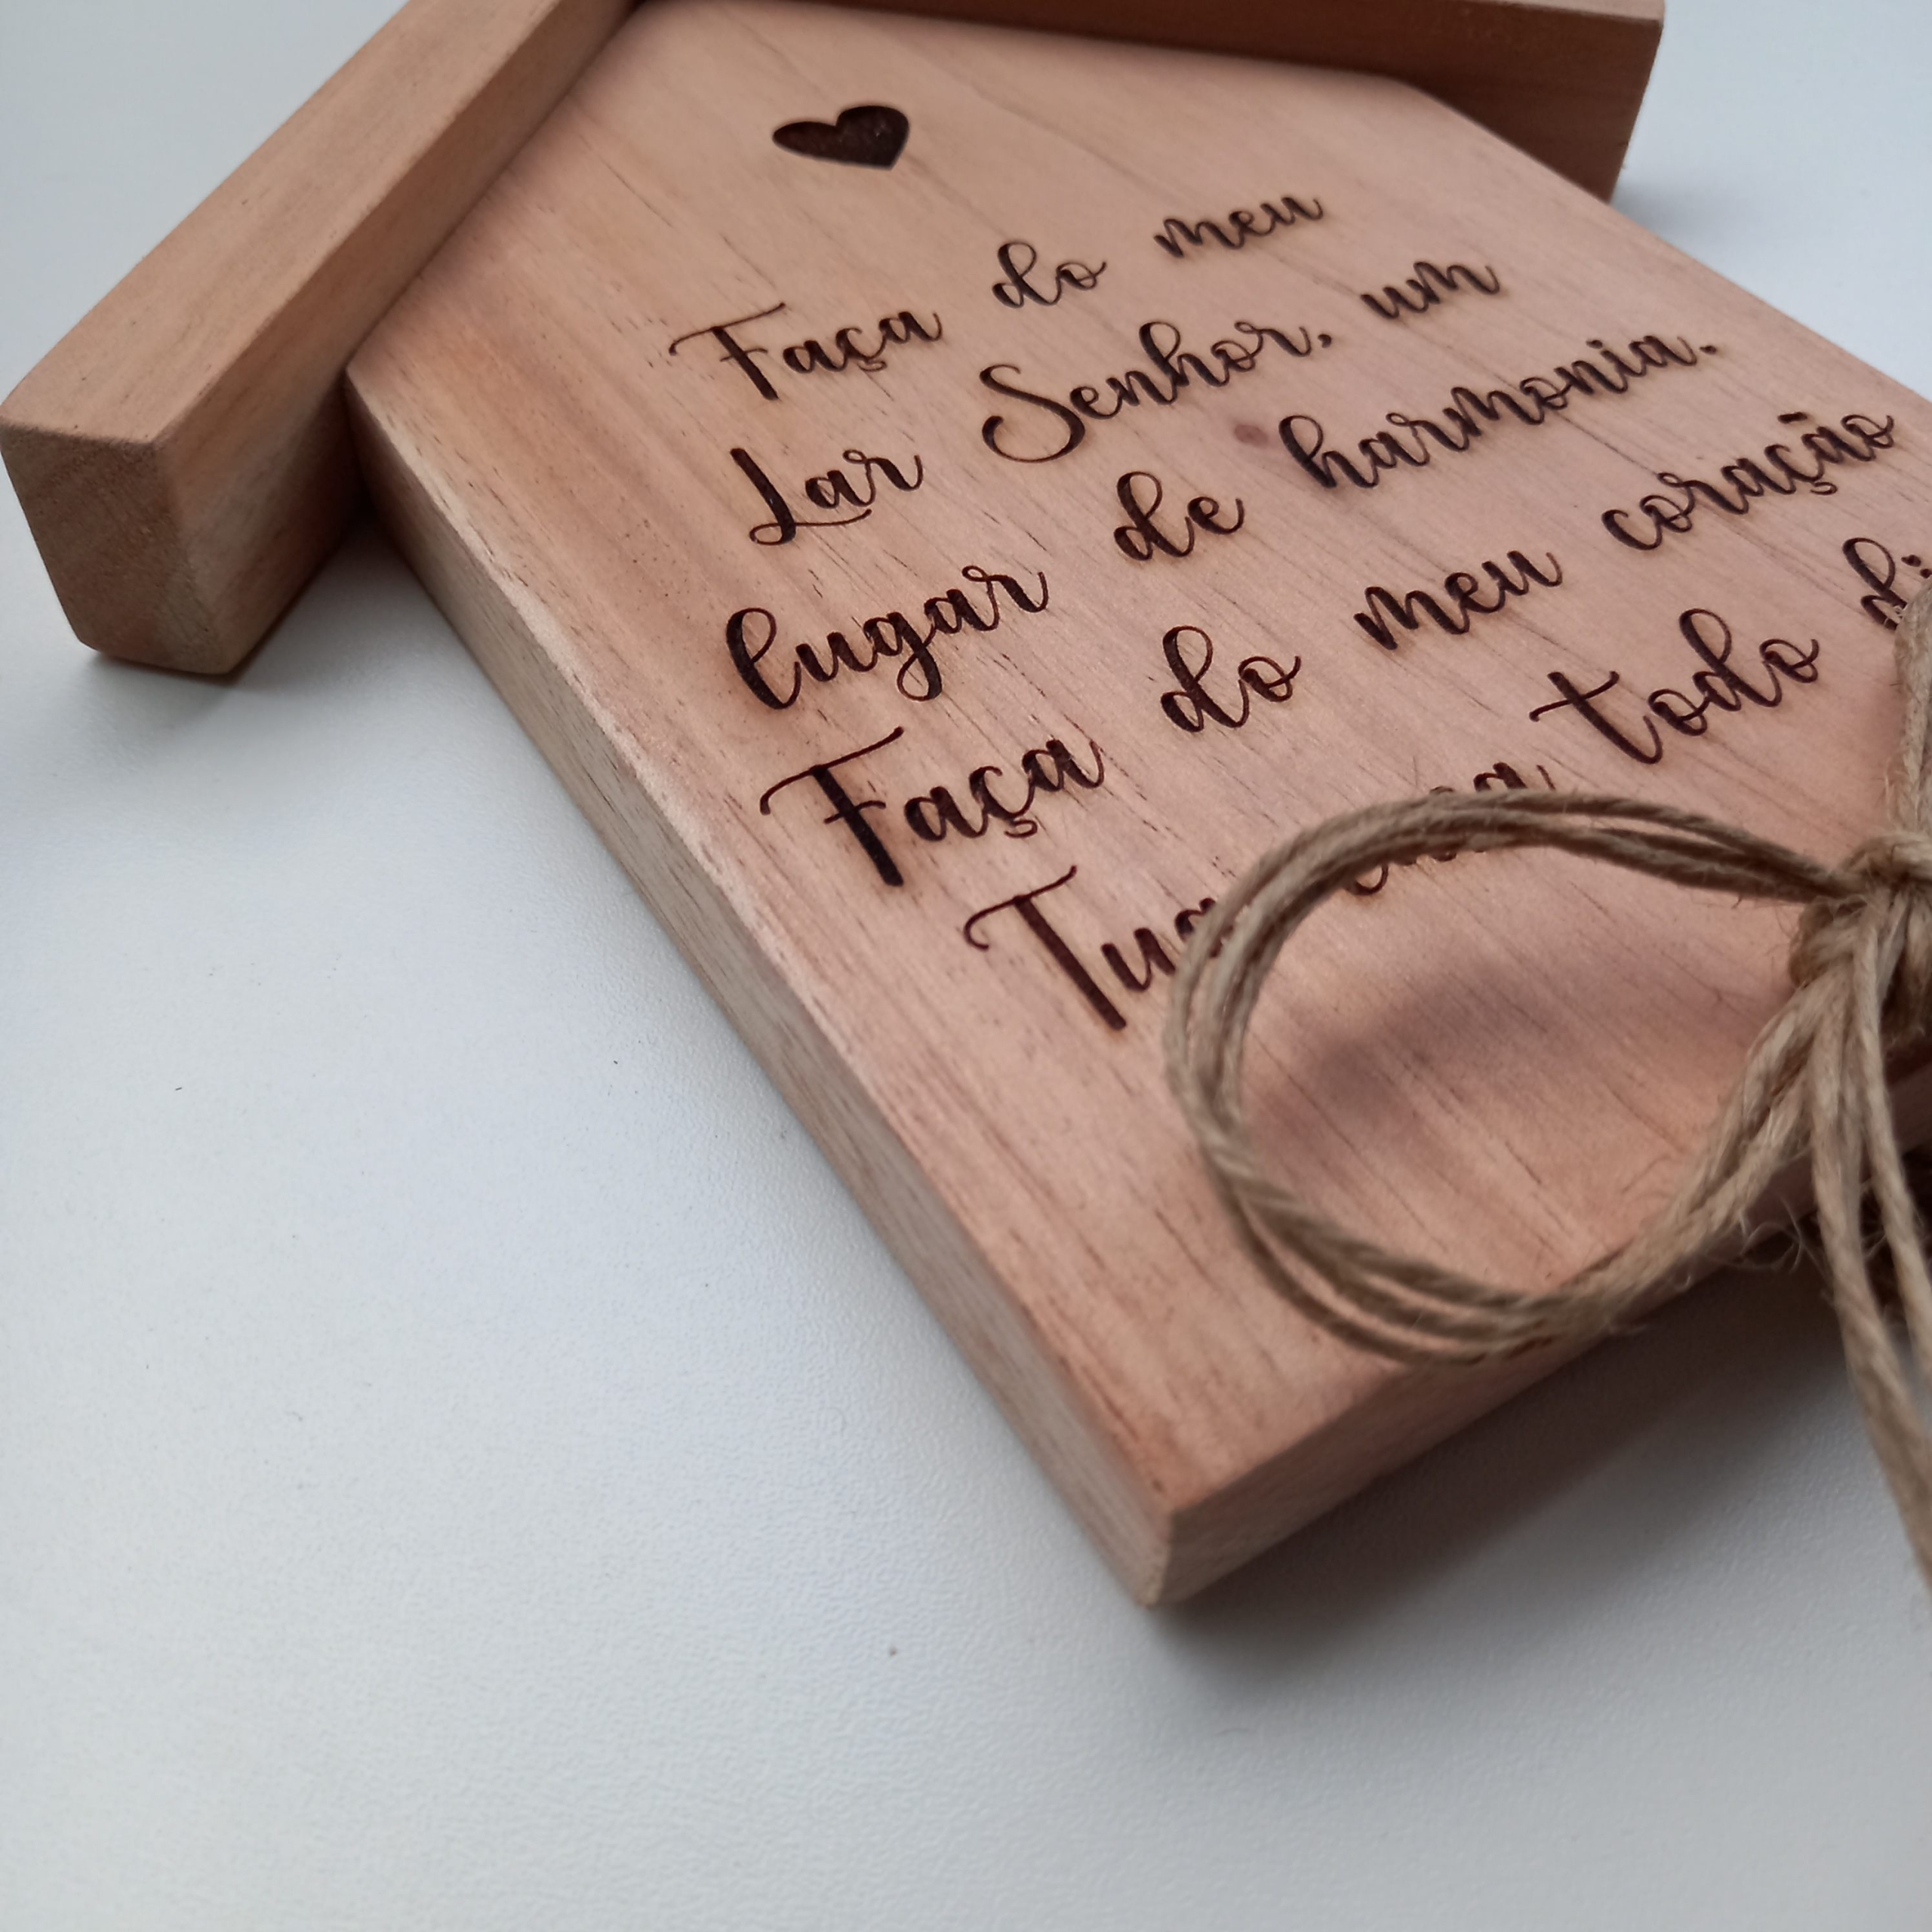 Faça do meu
Lar Senhor, um
lugar de harmonia.
Faça do meu coração
Tua todo